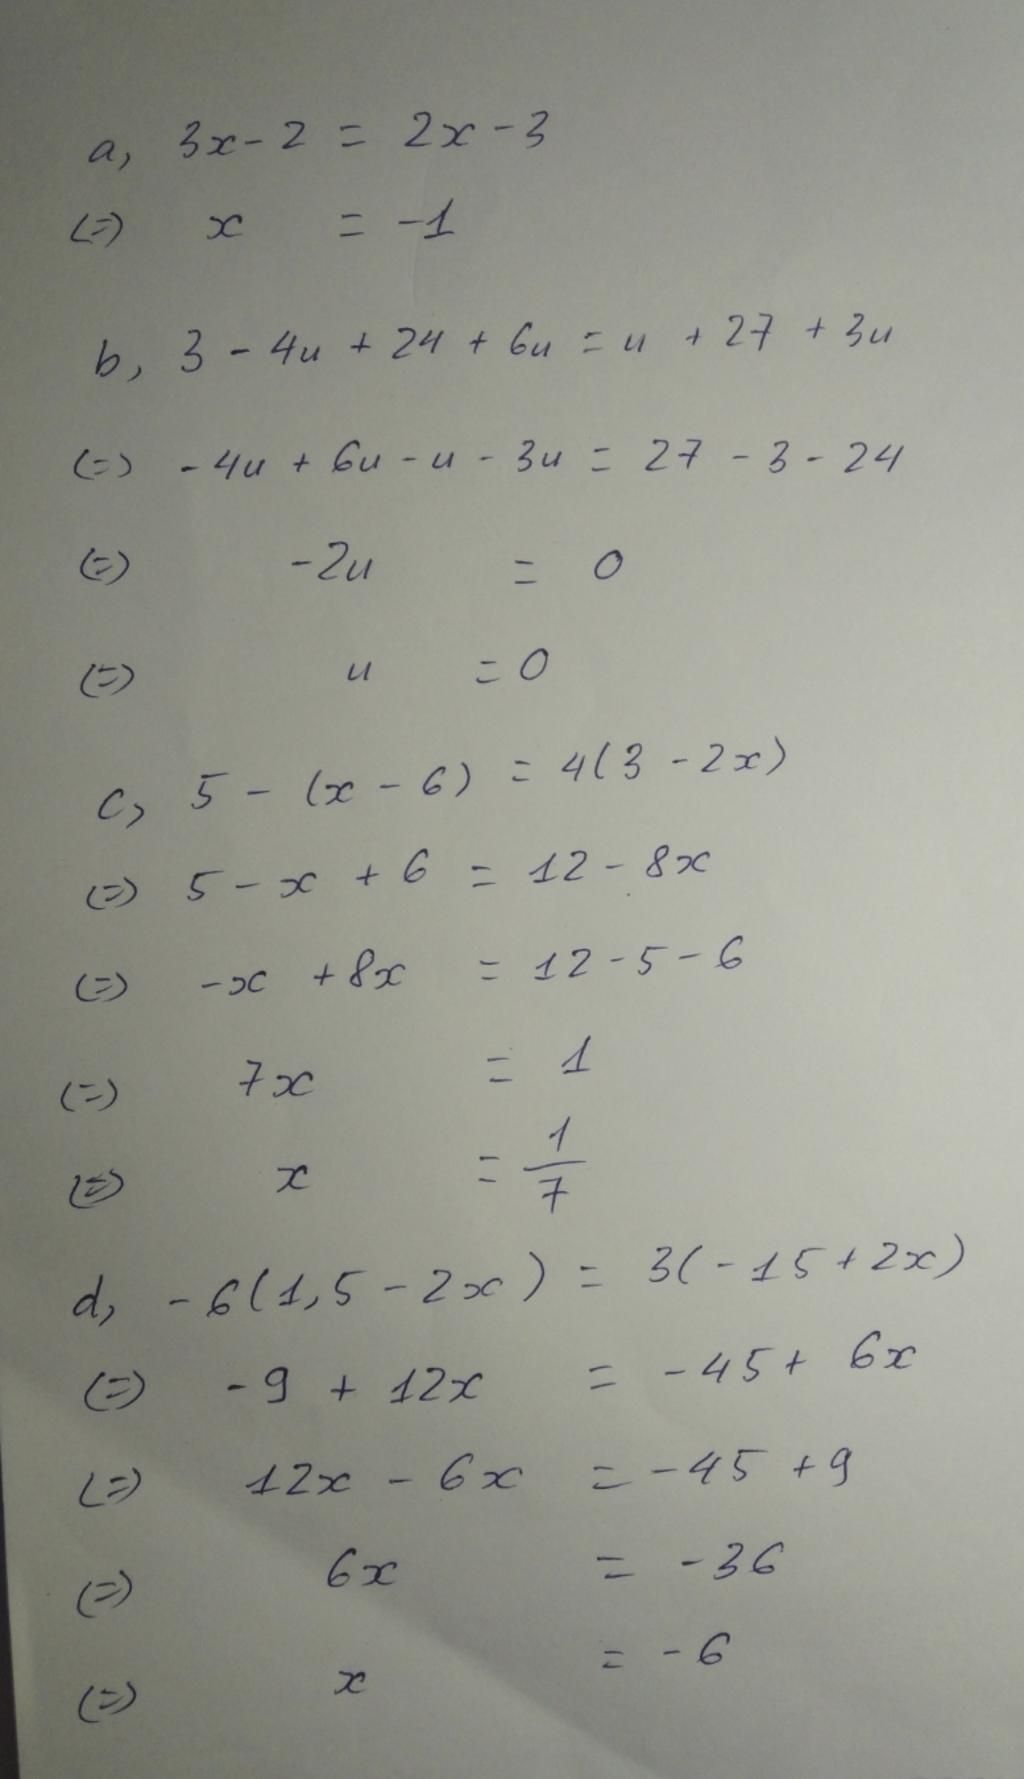 a, 3x - 2 = 2x - 3
(=) x = -1
b, 3 - 4u + 24 + 6u = u + 27 + 3u
(=) -4u + 6u - u - 3u = 27 - 3 - 24
(=) -2u = 0
(=) u = 0
c, 5 - (x - 6) = 4(3 - 2x)
(=) 5 - x + 6 = 12 - 8x
(=) -x + 8x = 12 - 5 - 6
(=) 7x = 1
(=) x = 1/7
d, -6(1,5 - 2x) = 3(-15 + 2x)
(=) -9 + 12x = -45 + 6x
(=) 12x - 6x = -45 + 9
(=) 6x = -36
(=) x = -6